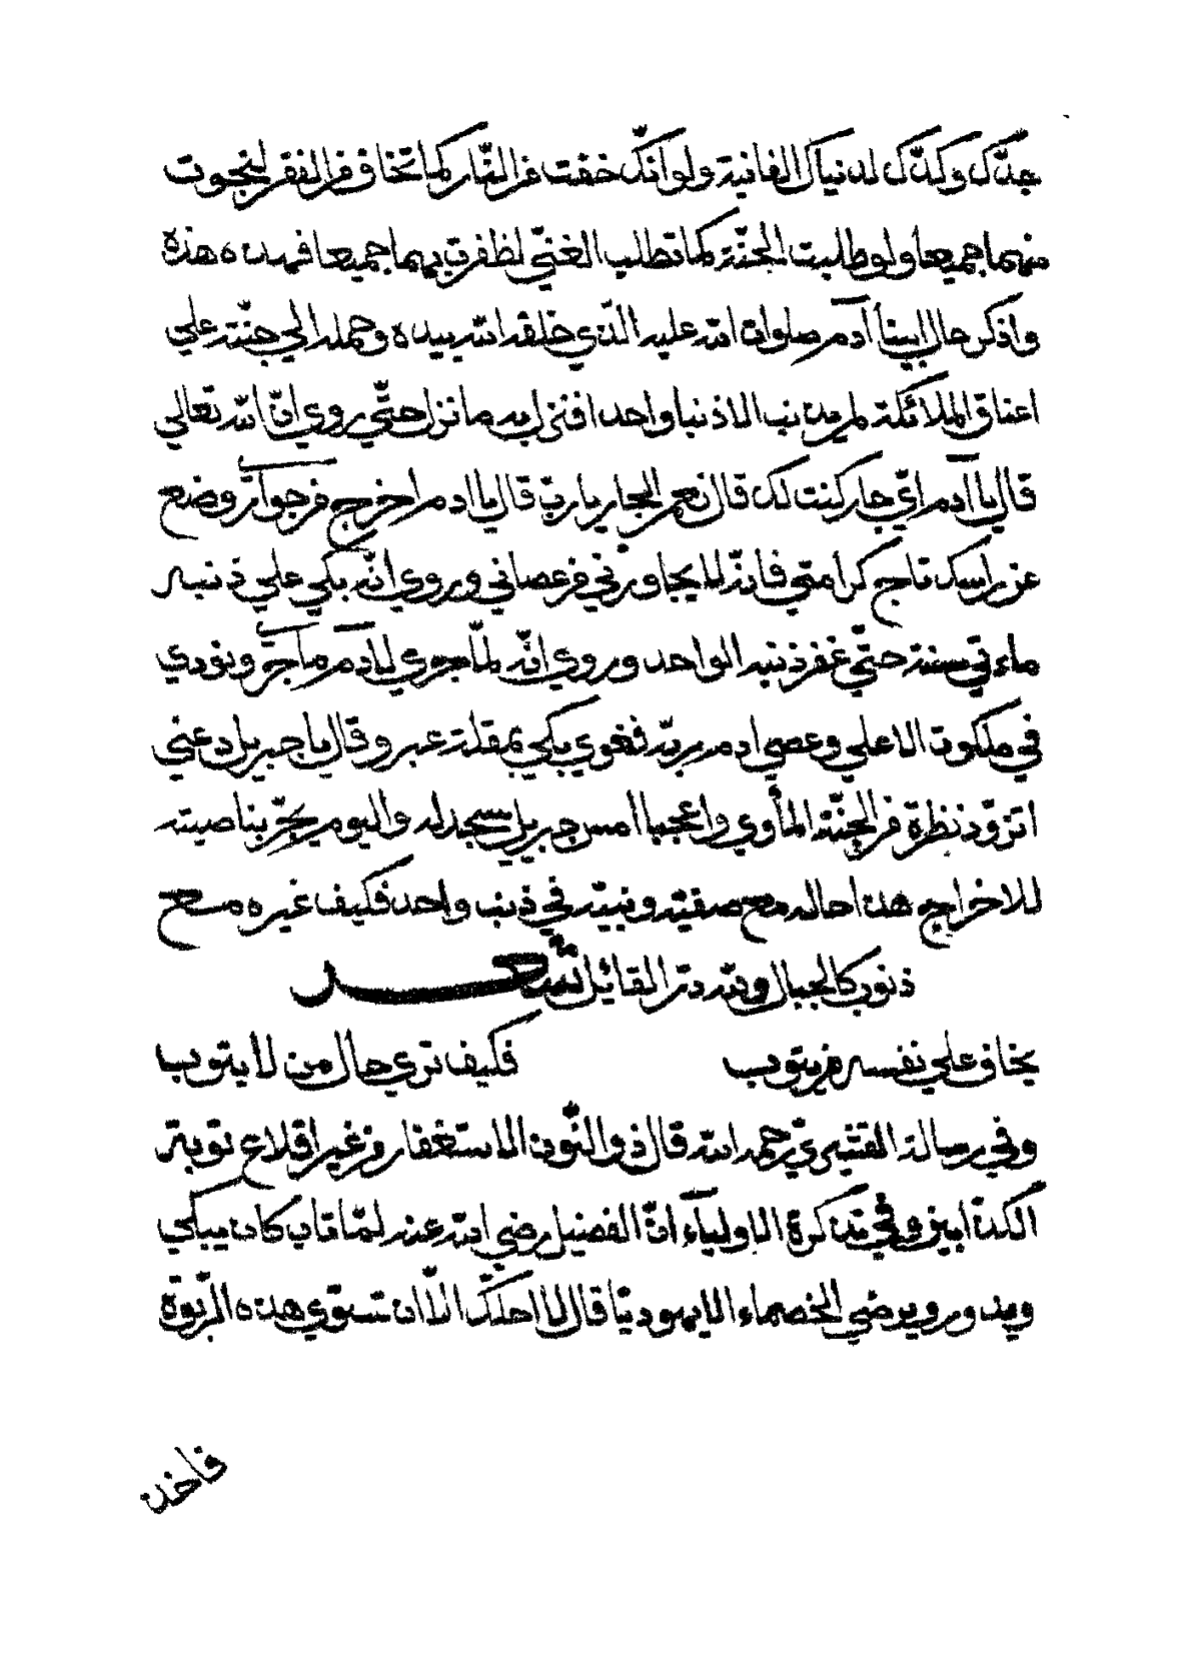 جدّك وكدّك لدنياك الفانية ولو انّك خفت من النّار كما تخاف من الفقر لنجوت
منهما جميعاً ولو طلبت الجنّة كما تطلب الغنيّ لظفرت بهما جميعا فهذه هذه
واذكر حال ابينا آدم صلوات الله عليه الّذي خلقه الله بيده وحمله الي جنّته علي
اعناق الملائكة لم يذنب الا ذنبا واحدا فنزل به ما نزل حتّي روي انّ الله تعالي
قال يا آدم ايّ جار كنت لك قال نعم الجار يا ربّ قال يا ادم اخرج من جواري وضع
عن راسك تاج كرامتي فانّه لا يجاورني من عصاني وروي انّه بكي علي ذنبه
ماءتي سنة حتّي غفر ذنبه الواحد وروي انّه لمّا جري لآدم ما جري ونودي
في ملكوت الاعلي وعصي ادم ربّه فغوي بكي بمقلة عبر وقال يا جبريل دعني
اتزوّد نظرة من الجنّة المأوي واعجبا امس جبريل سجد له واليوم يجرّ بناصيته
للاخراج هذا حاله مع صفيّه ونبيّه في ذنب واحد فكيف غيره مع
ذنوب كالجبال ولله درّ القائل شعر
يخاف علي نفسه من يتوب فكيف تري حال من لا يتوب
وفي رسالة القشيريّ رحمه الله قال ذو النّون الاستغفار من غير اقلاع توبة
الكذّابين وفي تذكرة الاولياء انّ الفضيل رضي الله عنه لمّا تاب كان يبكي
ويدور ويرضي الخصماء الا يهوديّا قال لا احلّك الّا ان تسوّي هذه الرّبوة
فاخذ